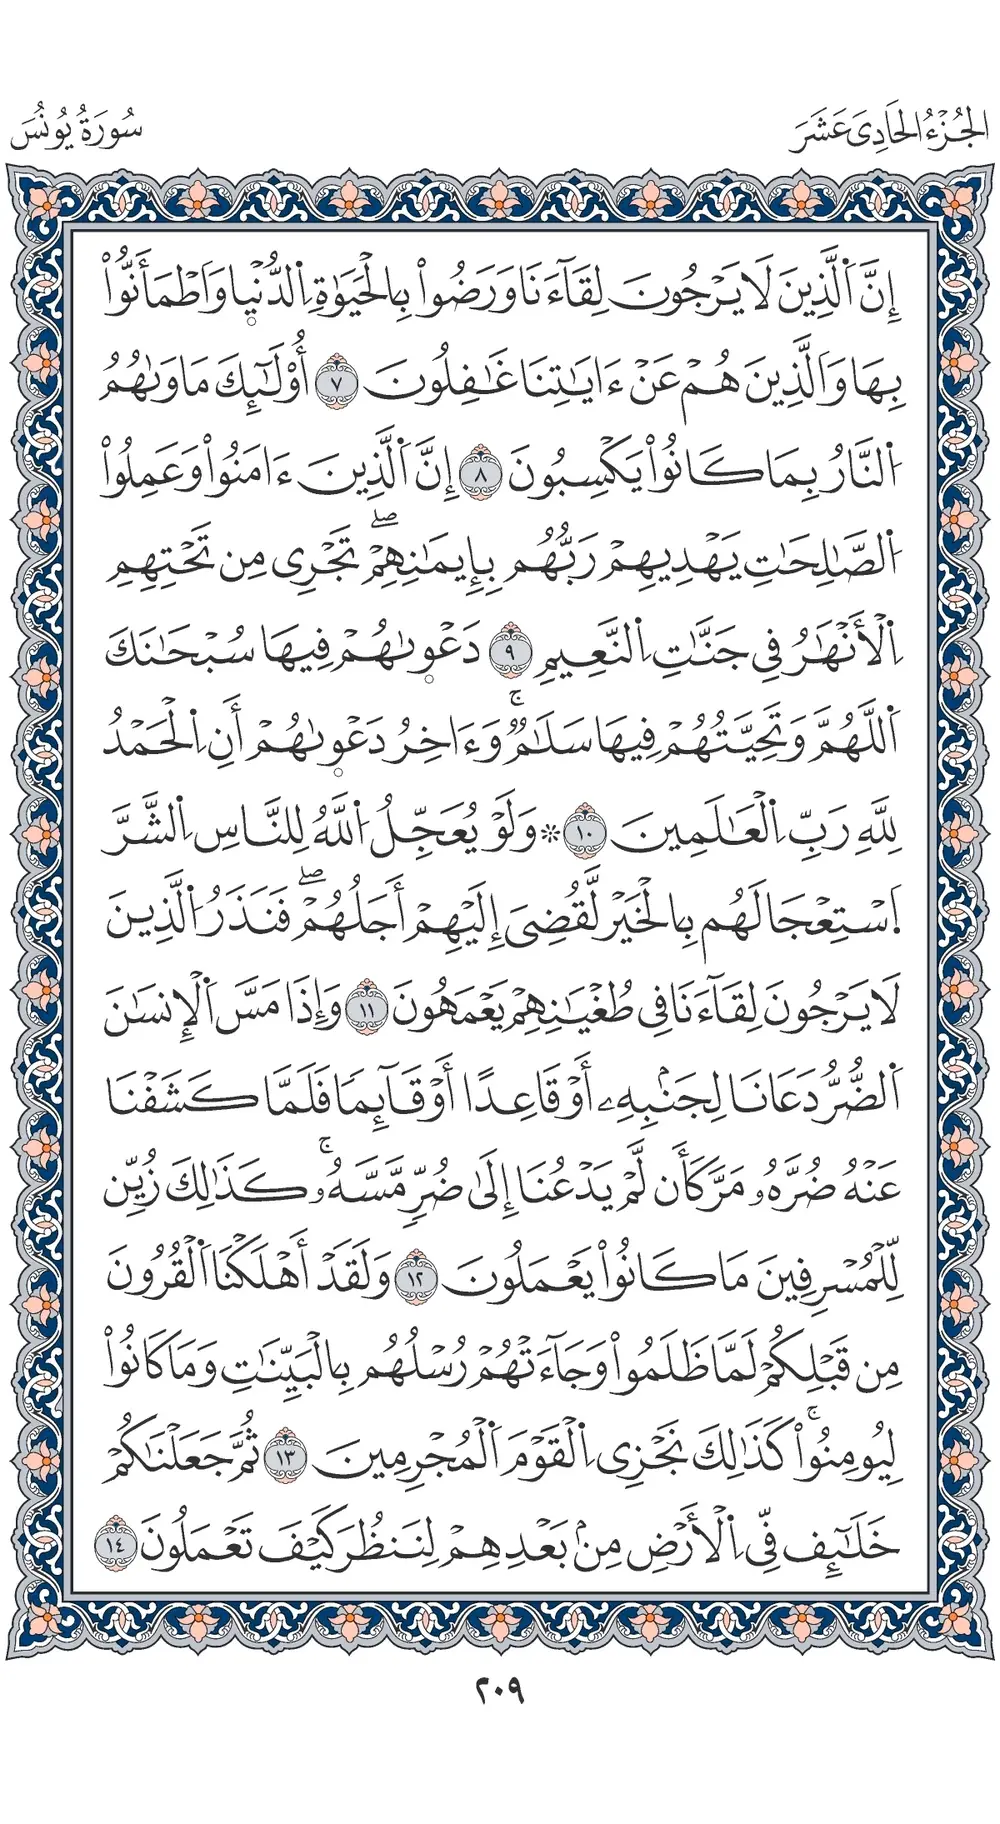 الجُزْءُ الحَادِىَ عَشَرَ
سُورَةُ يُونُسَ
إِنَّ اَ۬لذِينَ لَا يَرْجُونَ لِقَآءَنَا وَرَضُواْ بِالْحَيَوٰةِ اِ۬لدُّنْي۪ا وَاَطْمَأَنُّواْ
بِهَا وَالَّذِينَ هُمْ عَنْ ءَايَٰتِنَا غَٰفِلُونَ ٧ أُوْلَٰٓئِكَ مَاوَىٰهُمُ
اُ۬لنَّارُ بِمَا كَانُواْ يَكْسِبُونَ ٨ إِنَّ اَ۬لَّذِينَ ءَامَنُواْ وَعَمِلُواْ
اُ۬لصَّٰلِحَٰتِ يَهْدِيهِمْ رَبُّهُم بِإِيمَٰنِهِمْۖ تَجْرِى مِن تَحْتِهِمِ
اِ۬لْأَنْهَٰرُ فِى جَنَّٰتِ اِ۬لنَّعِيمِ ٩ دَعْو۪ىٰهُمْ فِيهَا سُبْحَٰنَكَ
اَ۬للَّهُمَّ وَتَحِيَّتُهُمْ فِيهَا سَلَٰمٌۚ وَءَاخِرُ دَعْو۪ىٰهُمْ أَنِ اِ۬لْحَمْدُ
لِلَّهِ رَبِّ اِ۬لْعَٰلَمِينَ ١٠ ۞ وَلَوْ يُعَجِّلُ اُ۬للَّهُ لِلنَّاسِ اِ۬لشَّرَّ
اَ۪سْتِعْجَالَهُم بِالْخَيْر لَّقُضِىَ إِلَيْهِمْ أَجَلُهُمْۖ فَنَذَرُ اُ۬لَّذِينَ
لَا يَرْجُونَ لِقَآءَنَا فِى طُغْيَٰنِهِمْ يَعْمَهُونَ ١١ وَإِذَا مَسَّ اَ۬لْإِنسَٰنَ
اَ۬لضُّرُّ دَعَانَا لِجَنۢبِهِۦ أَوْ قَاعِدًا أَوْ قَآئِمٗا فَلَمَّا كَشَفْنَا
عَنْهُ ضُرَّهُۥ مَرَّ كَأَن لَّمْ يَدْعُنَا إِلَىٰ ضُرّٖ مَّسَّهُۥۚ كَذَٰلِكَ زُيِّن
لِّلْمُسْرِفِينَ مَا كَانُواْ يَعْمَلُونَ ١٢ وَلَقَدْ أَهْلَكْنَا اَ۬لْقُرُونَ
مِن قَبْلِكُمْ لَمَّا ظَلَمُواْ وَجَآءَتْهُمْ رُسْلُهُم بِالْبَيِّنَٰتِ وَمَا كَانُواْ
لِيُومِنُواْۚ كَذَٰلِكَ نَجْزِى اِ۬لْقَوْمَ اَ۬لْمُجْرِمِينَ ١٣ ثُمَّ جَعَلْنَٰكُمْ
خَلَٰٓئِف فِّى اِ۬لْأَرْضِ مِنۢ بَعْدِهِمْ لِنَنظُرَ كَيْفَ تَعْمَلُونَ ١٤
٢٠٩